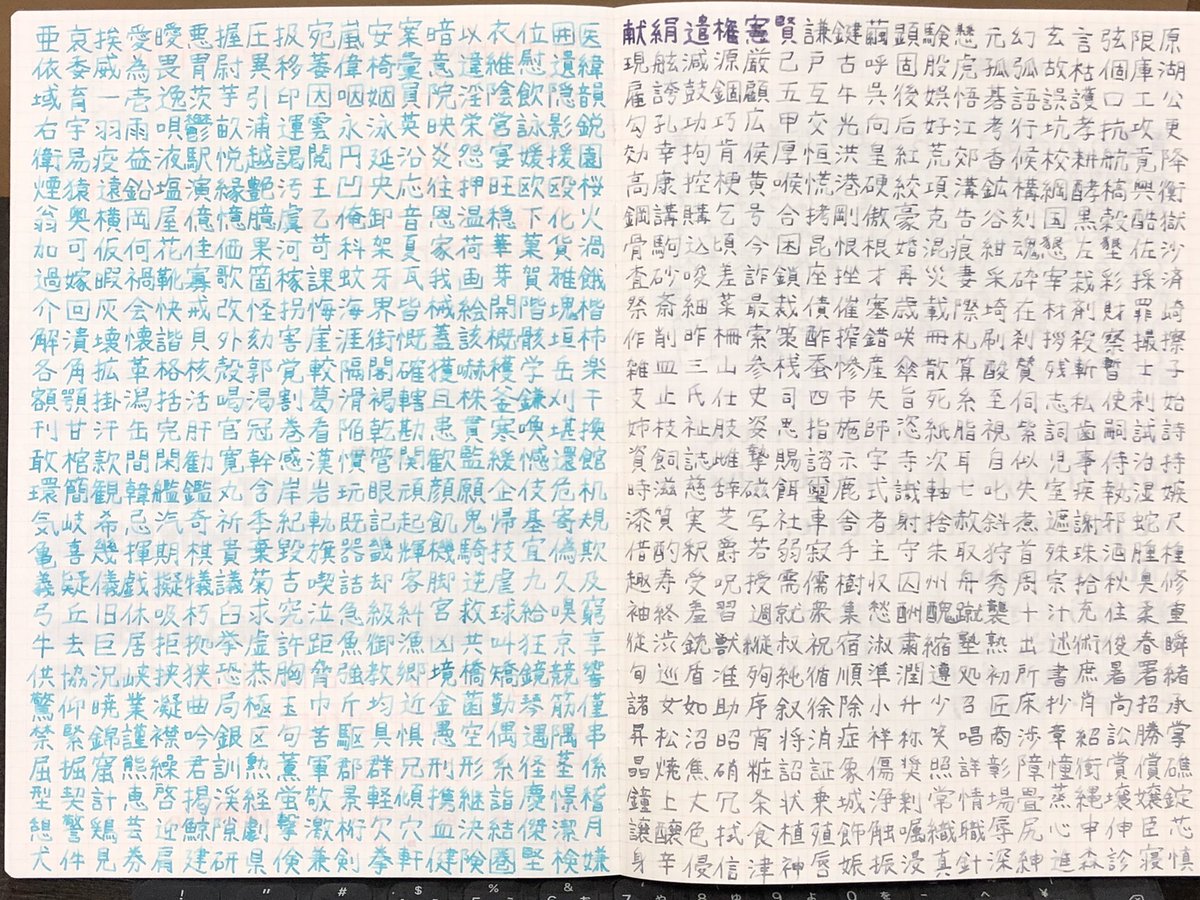 亜哀挨愛曖悪握圧扱宛嵐安案暗以衣位囲医
依委威為畏胃尉異移萎偉椅彙意違維慰遺緯
域育一壱逸茨芋引印因咽姻員院淫陰飲隠韻
右宇羽雨唄鬱畝浦運雲永泳英映栄営詠影鋭
衛易疫益液駅悦越謁閲円延沿炎怨宴媛援園
煙猿遠鉛塩演縁艶汚王凹央応往押旺欧殴桜
翁奥横岡屋億憶臆虞乙俺卸音恩温穏下化火
加可仮何花佳価果河苛科架夏家荷華菓貨渦
過嫁暇禍靴寡歌箇稼課蚊牙瓦我画芽賀雅餓
介回灰会快戒改怪拐悔海界皆械絵開階塊楷
解潰壊懐諧貝外劾害崖涯街慨蓋該概骸垣柿
各角拡革格核殻郭覚較隔閣確獲嚇穫学岳楽
額顎掛潟括活喝渇割葛滑褐轄且株釜鎌刈干
刊甘汗缶完肝官冠巻看陥乾勘患貫寒喚堪換
敢棺款間閑勧寛幹感漢慣管関歓監緩憾還館
環簡観韓艦鑑丸含岸岩玩眼頑顔願企伎危机
気岐希忌汽奇祈季紀軌既記起飢鬼帰基寄規
亀喜幾揮期棋貴棄毀旗器畿輝機騎技宜偽欺
義疑儀戯擬犠議菊吉喫詰却客脚逆虐九久及
弓丘旧休吸朽臼求究泣急級糾宮救球給嗅窮
牛去巨居拒拠挙虚許距魚御漁凶共叫狂京享
供協況峡挟狭恐恭胸脅強教郷境橋矯鏡競響
驚仰暁業凝曲局極玉巾斤均近金菌勤琴筋僅
禁緊錦謹襟吟銀区句苦駆具惧愚空偶遇隅串
屈掘窟熊繰君訓勲薫軍郡群兄刑形系径茎係
型契計恵啓掲渓経蛍敬景軽傾携継詣慶憬稽
憩警鶏芸迎鯨隙劇撃激桁欠穴血決結傑潔月
犬件見券肩建研県倹兼剣拳軒健険圏堅検嫌
献絹遣権憲賢謙鍵繭顕験懸元幻玄言弦限原
現舷減源厳己戸古呼固股虎孤弧故枯個庫湖
雇誇鼓錮顧五互午呉後娯悟碁語誤護口工公
勾孔功巧広甲交光向后好江考行坑孝抗攻更
効幸拘肯侯厚恒洪皇紅荒郊香候校耕航貢降
高康控梗黄喉慌港硬絞項溝鉱構綱酵稿興衡
鋼講購乞号合拷剛傲豪克告谷刻国黒穀酷獄
骨駒込頃今困昆恨根婚混痕紺魂懇左墾佐沙
査砂唆差詐鎖座挫才再災妻采砕宰栽彩採済
祭斎細菜最裁債催塞歳載際埼在材剤財罪崎
作削昨柵索策酢搾錯咲冊札刷刹拶殺察撮擦
雑皿三山参桟蚕惨産傘散算酸賛残斬暫士子
支止氏仕史司四市矢旨死糸至伺志私使刺始
姉枝祉肢姿思指施師恣紙脂視紫詞歯嗣試詩
資飼誌雌摯賜諮示字寺次耳自似児事侍治持
時滋慈辞磁餌璽鹿式識軸七叱失室疾執湿嫉
漆質実芝写社車舎者射捨赦斜煮遮謝邪蛇尺
借酌釈爵若弱寂手主守朱取狩首殊珠酒腫種
趣寿受呪授需儒樹収囚州舟秀周宗拾秋臭修
袖終羞習週就衆集愁酬醜蹴襲十汁充住柔重
従渋銃獣縦叔祝宿淑粛縮塾熟出述術俊春瞬
旬巡盾准殉純循順準潤遵処初所書庶暑署緒
諸女如助序叙徐除小升少召匠床抄肖尚招承
昇松沼昭宵将消症祥称笑唱商渉章紹訟勝掌
晶焼焦硝粧詔証象傷奨照詳彰障憧衝賞償礁
鐘上丈冗条状乗城浄剰常情場畳蒸縄壌嬢錠
譲醸色拭食植殖飾触嘱織職辱尻心申伸臣芯
身辛侵信津神唇娠振浸真針深紳進森診寝慎